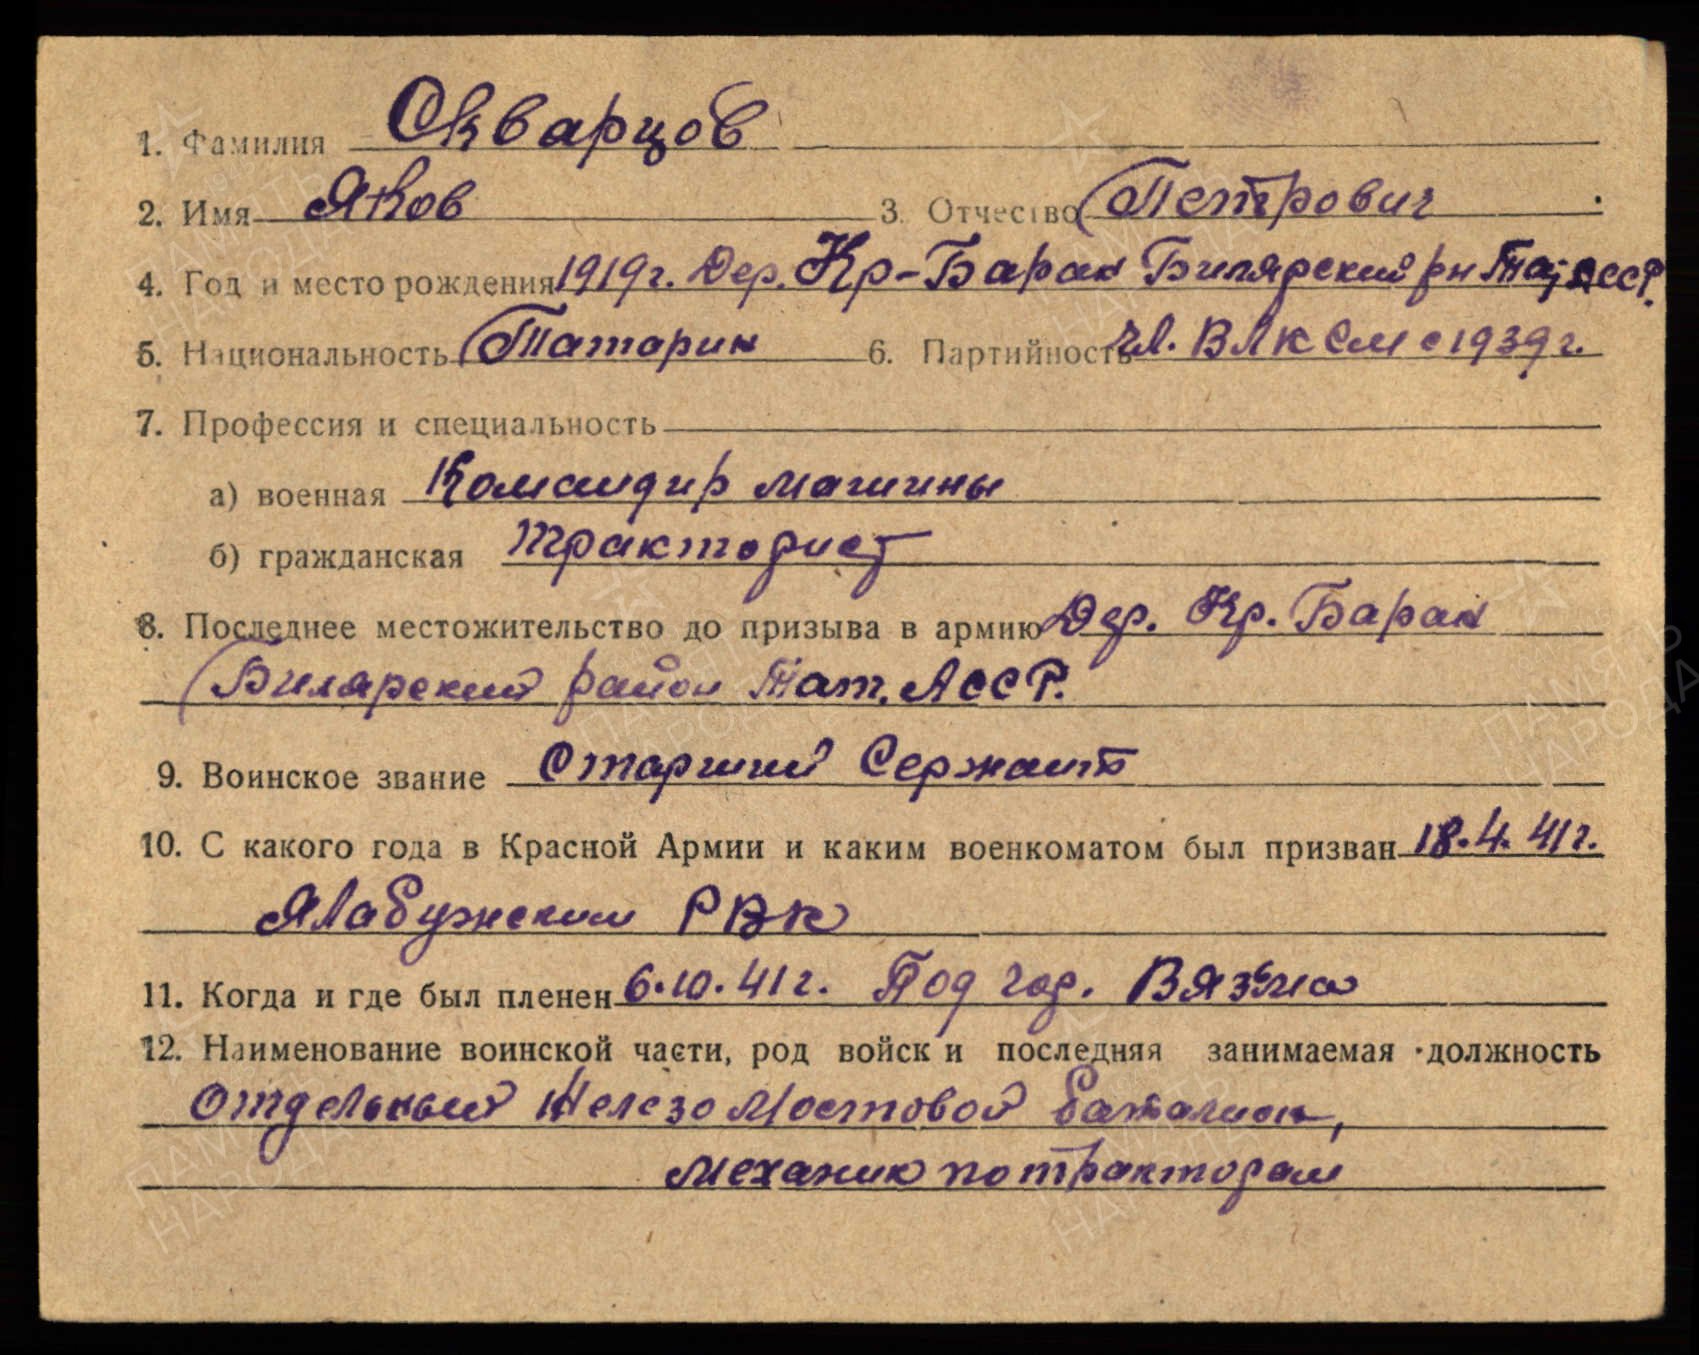 1. Фамилия Скварцов
2. Имя Яков 3. Отчество Петрович
4. Год и место рождения 1919г. Дер. Кр-Барак Билярский рн Тат АССР.
5. Национальность Татарин 6. Партийность чл. ВЛКСМ с 1939г.
7. Профессия и специальность
а) военная Командир машины
б) гражданская тракторист
8. Последнее местожительство до призыва в армию Дер. Кр. Барак
Билярский район Тат. АССР.
9. Воинское звание Старший Сержант
10. С какого года в Красной Армии и каким военкоматом был призван 18.4.41г.
Ялабужским РВК
11. Когда и где был пленен 6.10.41г. Под гор. Вязьма
12. Наименование воинской части, род войск и последняя занимаемая должность
Отдельный Железо Мостовой батальон,
механик по тракторам
ПАМЯТЬ
НАРОДА